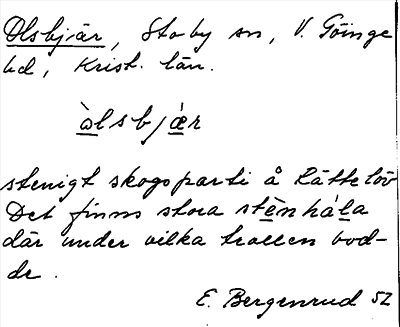 Olsbjär, Stoby sn, V. Göinge
hd, Krist. län.
ὼlsbjæ̀r
stenigt skogsparti å Rättelöv
Det finns stora stènhála
där under vilka trollen bod-
de.
E. Bergenrud 52